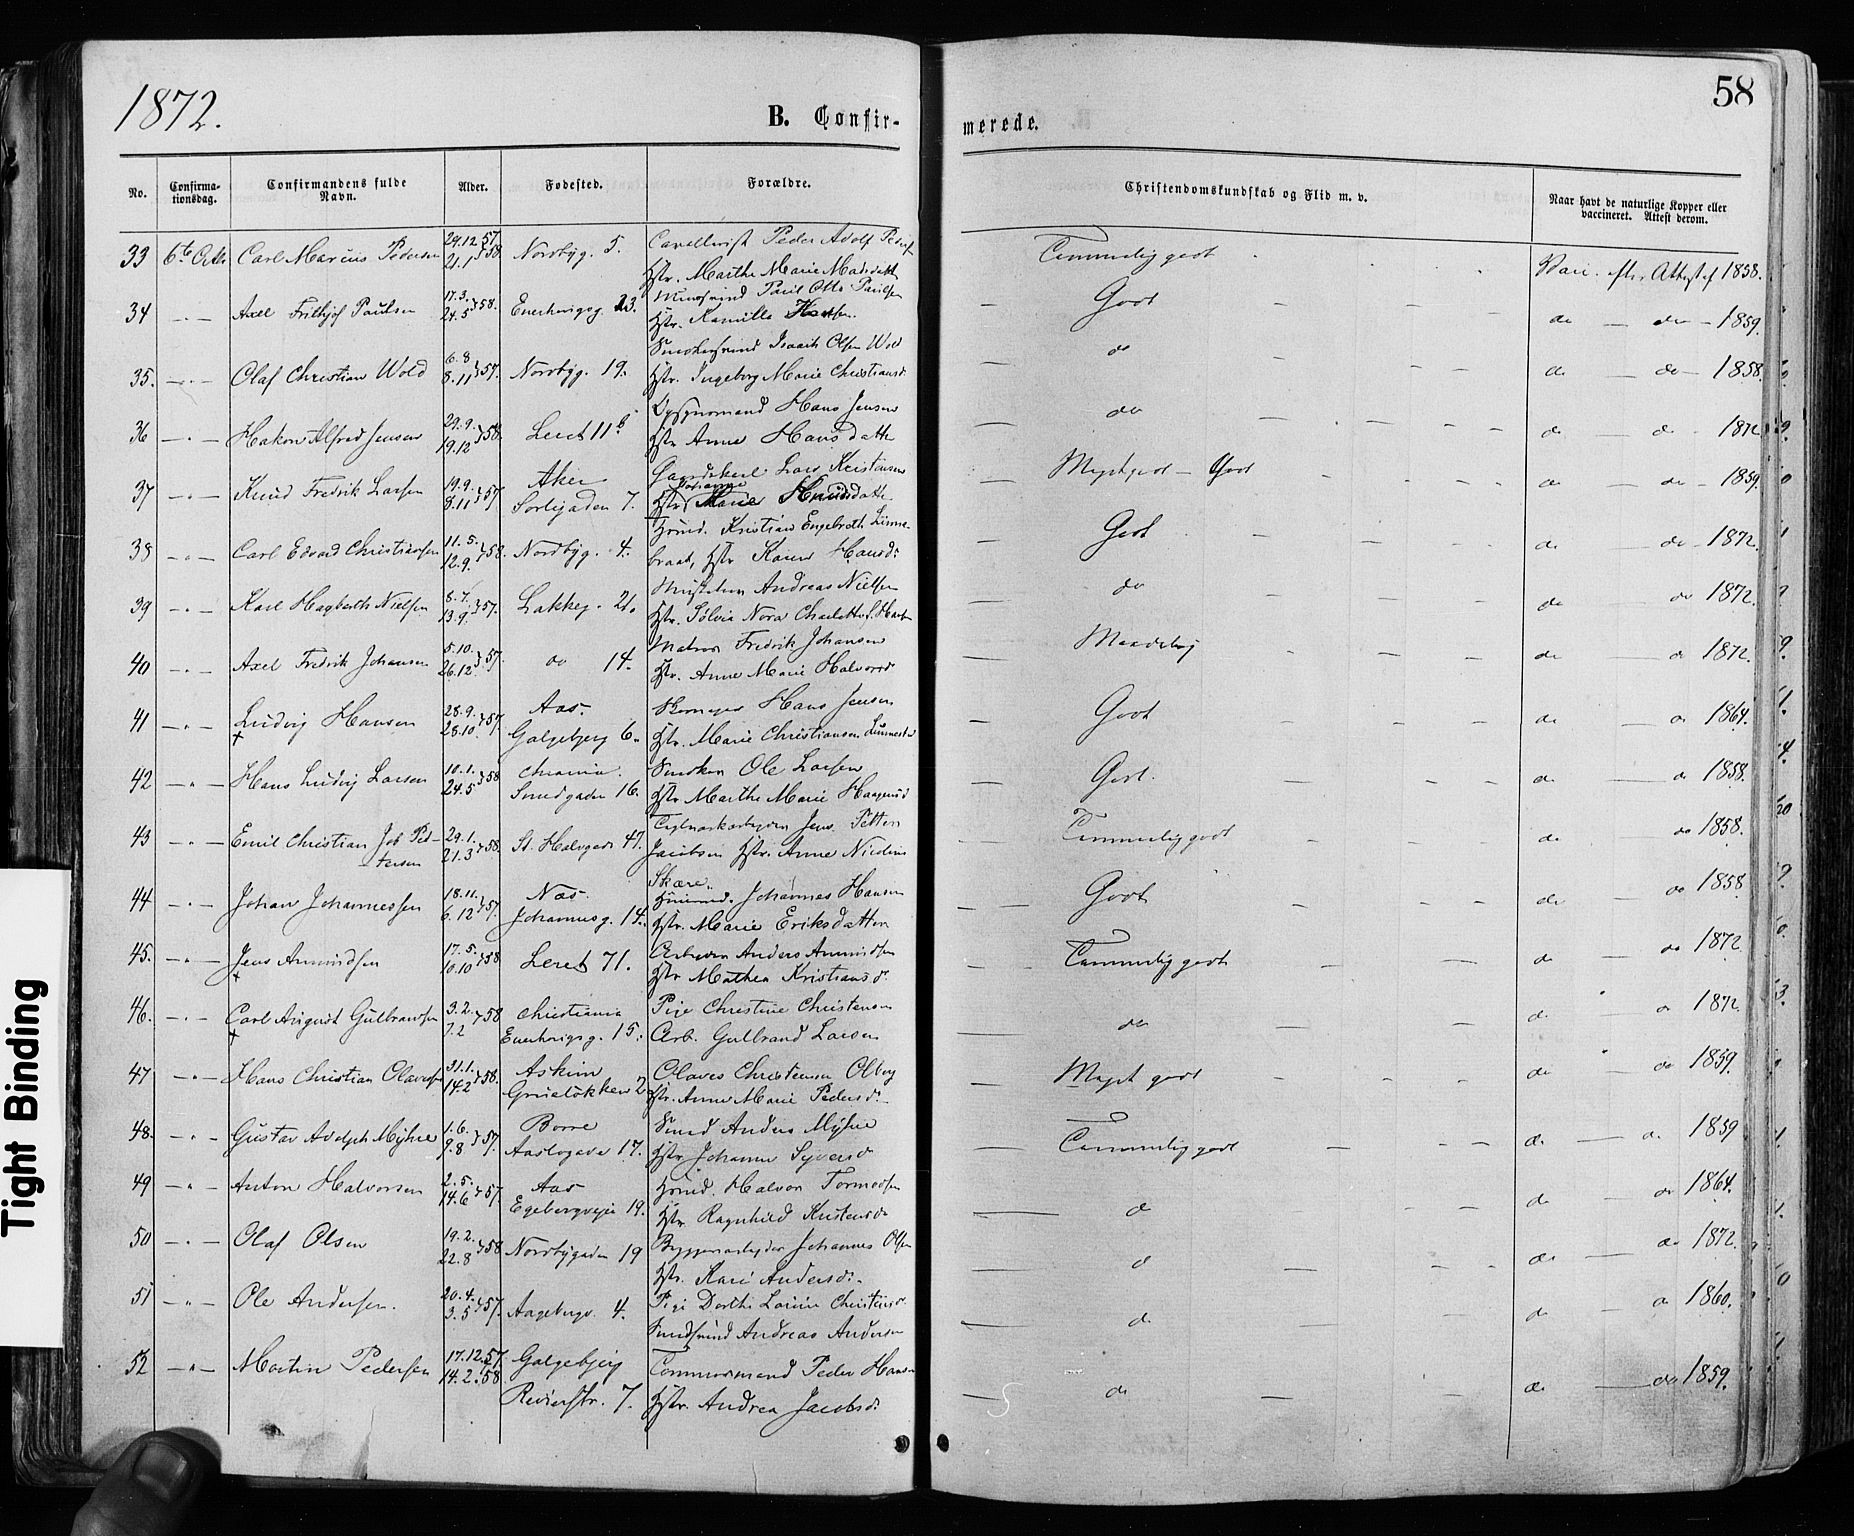 1872.
B. Confir-
merede.
58
No.
Confirma-
tionsdag.
Confirmandens fulde
Navn.
Alder.
Fødested.
Forældre.
Christendomskundskab og Flid m. v.
Naar havt de naturlige Kopper eller
vaccineret. Attest derom.
33 6te Octbr Carl Marius Pedersen 29.12.57 21.1 58 Nordbyg. 5. Peder Adolf
Hstr. Marthe Marie Madsdatter
Temmelig godt Vacc. eftr. Attest af 1858.
34 — " — Axel Frithjof Paulsen 17.3. 24.5 58. Enerhaugsg. 23. Paul Otto Paulsen
Hstr. Kamilla
Godt do — do — 1859.
35. — " — Olaf Christian Wold 6.8 8.11 57. Nordbyg. 19. Isaach Olsen Wold
Hstr. Ingeborg Marie Christiansd.
do do — do — 1858.
36 — " — Hakon Alfred Jensen 29.9. 19.12 58. Leret 11 b Hans Jensen
Hstr. Anne Hansdatter
do do — do 1872
37 — " — Knud Fredrik Larsen 19.9. 8.11 57 Aker
Sorligaden 7. Lars Kristensen
Hstr. Johanne Marie Knudsdatter
Meget godt — Godt do — do 1859.
38 — " — Carl Edvard Christiansen 11.5. 12.9. 58. Nordbyg. 4. Kristian Engebreth
Hstr. Karen Hansd.
Godt do — do 1872.
39 — " — Karl Hagbarth Nielsen 8.7. 13.9. 57. Lakkeg. 21. Andreas Nielsen
Hstr. Sølvia Nora Charlotte
do do — do 1872.
40 — " — Axel Fredrik Johansen 5.10. 26.12. 57. do 14. Matros Fredrik Johansen
Hstr. Anne Marie Halvorsd.
Maadelig do — do 1872.
41 — " — Ludvig Hansen 28.9. 28.10. 57. Aas.
Galgebjerg 6. Hans Jensen
Hstr. Marie Christiansen
Godt do — do 1864.
42 — " — Hans Ludvig Larsen 10.1. 24.5 58 Chrania.
Smedgaden 16. Snedker Ole Larsen
Hstr. Marthe Marie
Godt. do — do 1858.
43 — " — Emil Christian Job Pet-
tersen 29.1. 21.3 58. St. Halvgade 47. Jens Petter
Jacobsen Hstr. Anne
Temmelig godt do do 1858.
44 — " — Johan Johannessen 18.11. 6.12 57. Næs.
Johannesg. 14. Skære.
Johannes Hansen
Hstr. Marie Eriksdatter
Godt do do 1858
45. — " — Jens Amundsen 17.5. 10.10 58 Leret 71. Arbeider Anders Amundsen
Hstr. Mathea Kristiansd.
Temmelig godt do do 1872
46. — " — Carl August Gulbrandsen 3.2. 7.2 58 Christiania
Enerhaugsg. 15. Pige Christine Christensen
Arb. Gulbrand Larsen
do do do 1872.
47 — " — Hans Christian Olavesen 31.1. 14.2 58. Askim
Grueløkken 2 Olaves Christensen Olberg
Hstr. Anne Marie Pedersd.
Meget godt do do 1859.
48. — " — Gustav Adolph Myhre 1.6. 9.8 57. Borre
Aaslogaden 17. Smed Anders Myhre
Hstr. Johanne Syversd.
Temmelig godt do — do 1859
49 — " — Anton Halvorsen 2.5. 14.6 57. Aas
Egebergveien 19. Halvor Tormodsen
Hstr. Ragnhild Kristensd.
do do do 1864.
50 — " — Olaf Olsen 19.2. 22.8 58 Nordbygaden 19 Johannes Olsen
Hstr. Kari Andersd.
do do do 1872.
51 — " — Ole Andersen. 20.4. 3.5 57. Aagebergv. 4. Pige Dorthe Lovise Christensd.
Andreas Andersen
do do do 1860.
52 — " — Martin Pedersen 17.12.57 14.2. 58 Galgebjerg
Revierstr. 7. Tømmermand Peder Hansen
Hstr. Andrea Jacobsd.
do do — do 1859.
Tight Binding